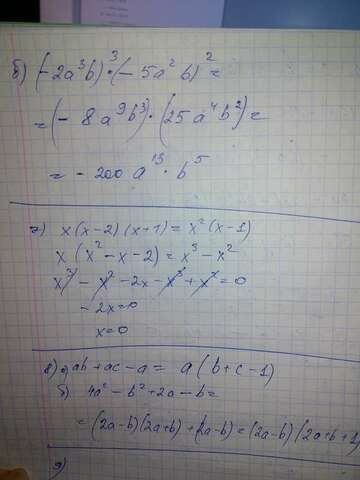 б) (-2a³b)³·(-5a²b)²=
=(-8a⁹b³)·(25a⁴b²)=
=-200a¹³·b⁵
7) x(x-2)(x+1)=x²(x-1)
x(x²-x-2)=x³-x²
x³-x²-2x-x³+x²=0
-2x=0
x=0
8) а) ab+ac-a= a(b+c-1)
б) 4a²-b²+2a-b=
=(2a-b)(2a+b)+(2a-b)=(2a-b)(2a+b+1)
9)